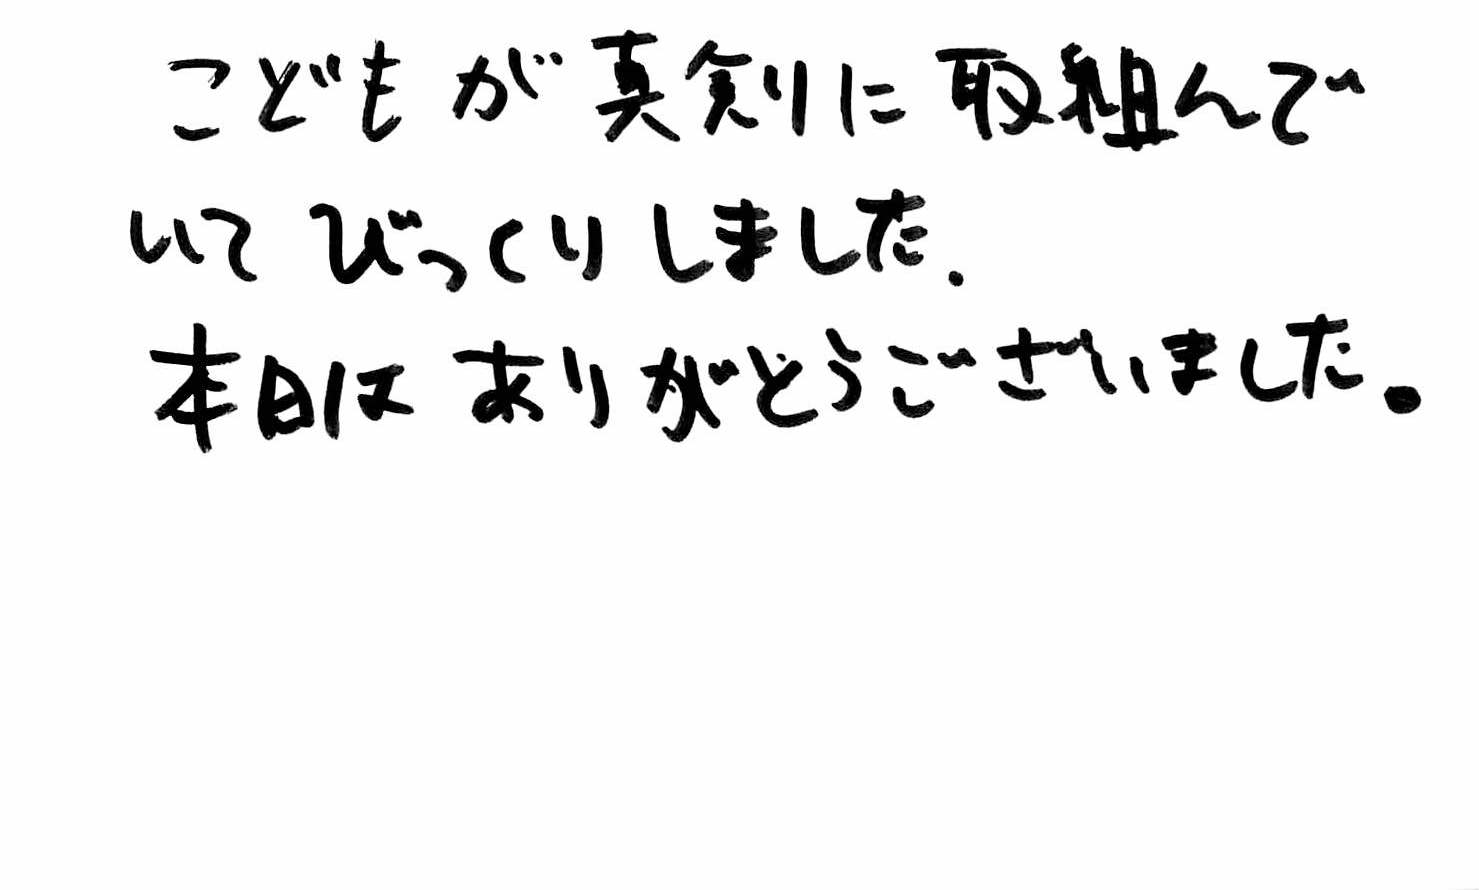 こどもが真剣に取組んで
いてびっくりしました.
本日はありがとうございました。